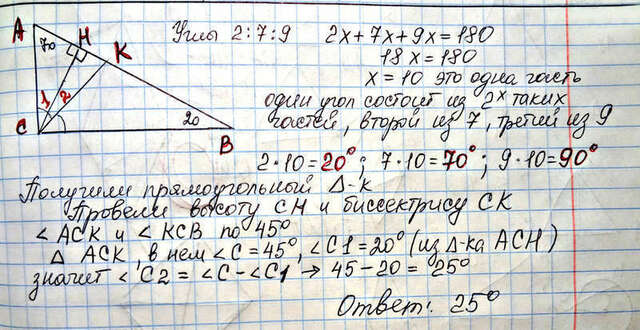 Углы 2:7:9 2x+7x+9x=180
18x=180
x=10 это одна часть
один угол состоит из 2x таких
частей, второй из 7, третий из 9
2·10=20°; 7·10=70°; 9·10=90°
A
H
K
70
1
2
C
20
B
Получили прямоугольный Δ-к
Провели высоту CH и биссектрису CK
∠ACK и ∠KCB по 45°
Δ ACK, в нем ∠C=45°, ∠C1=20° (из Δ-ка ACH)
значит ∠C2=∠C-∠C1 → 45-20=25°
Ответ: 25°